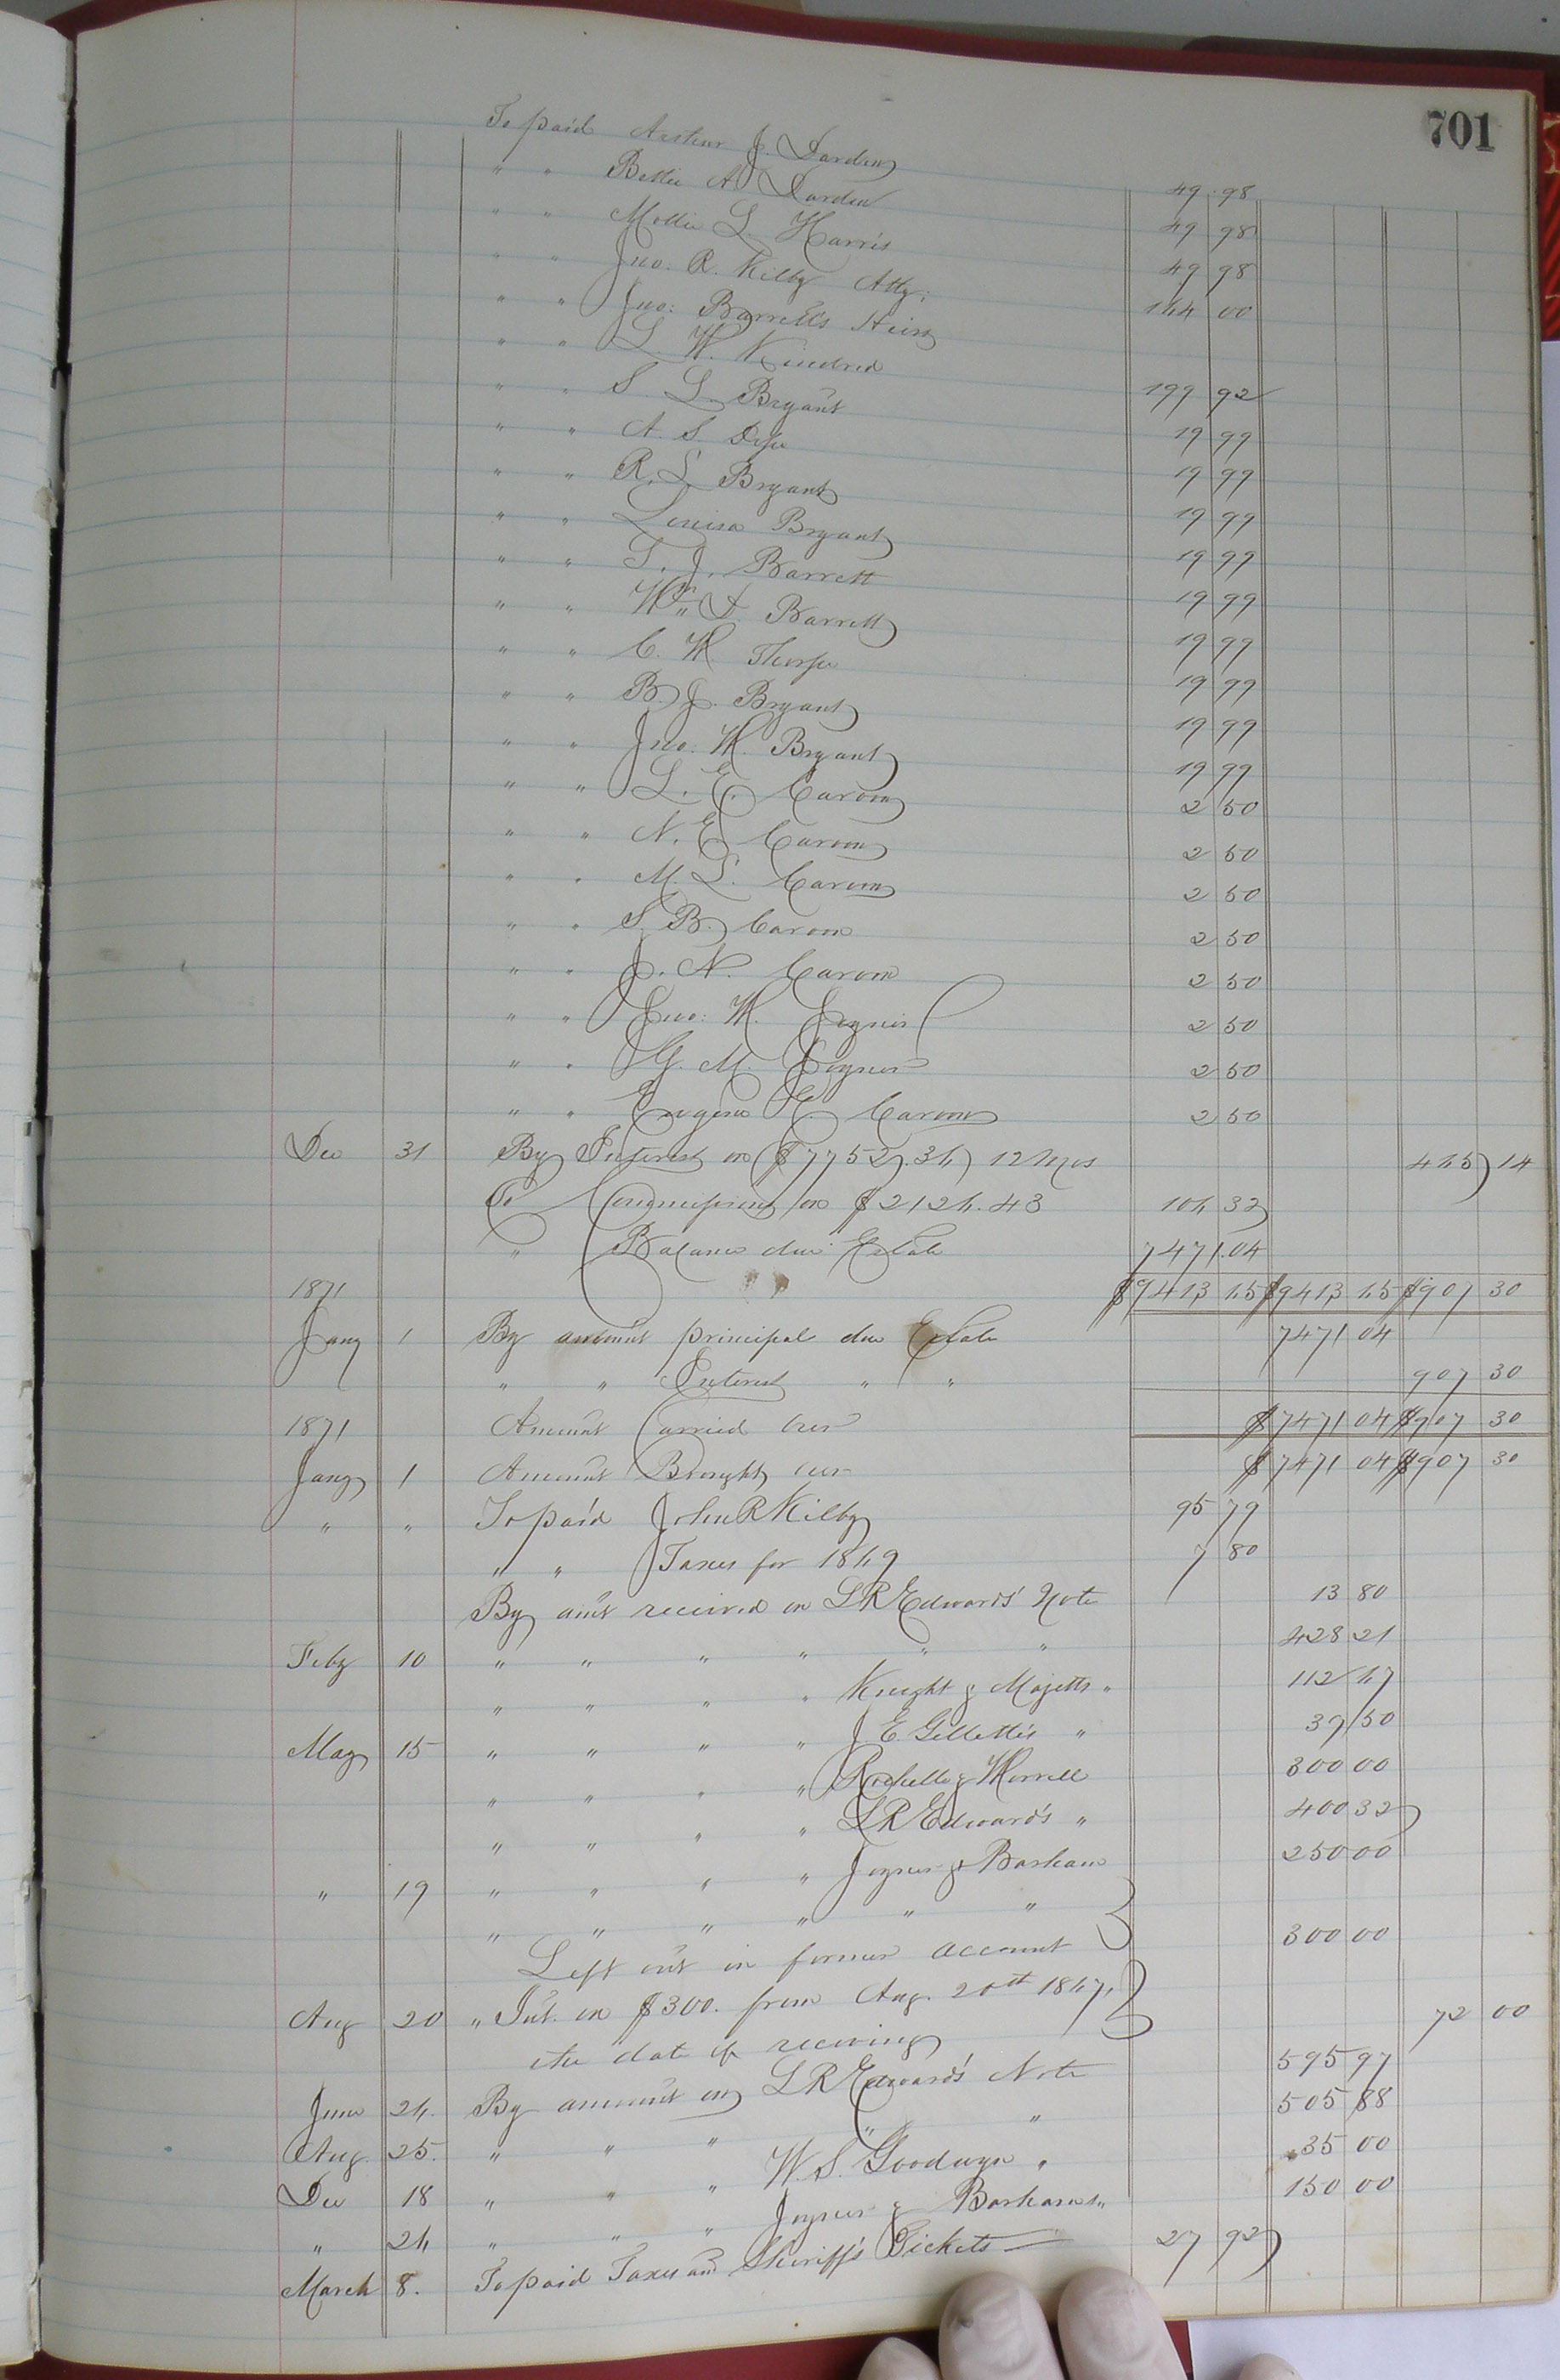 701
To paid Arthur J. Darden 49 98
" " Bettie A Darden 49 98
" " Mollie L. Harris 49 98
" " Jno. R. Kilby Atty: 164 00
" " Jno: Barrett's Heirs
" " L. W. Kindred 199 92
" " S. L. Bryant 19 99
" " A. S. 19 99
" " R. L. Bryant 19 99
" " Louisa Bryant 19 99
" " T. J. Barrett 19 99
" " Wm. Barrett 19 99
" " C. W. Thorpe 19 99
" " B. J. Bryant 19 99
" " Jno. W. Bryant 19 99
" " L. E. Carom 2 50
" " N. E. Carom 2 50
" " M. L. Carom 2 50
" " S. B. Carom 2 50
" " J. N. Carom 2 50
" " Jno: W. Joyner 2 50
" " G. M. Joyner 2 50
" " Eugene E. Carom 2 50
Dec 31 By Interest on $7752.36 12 Mos 465 14
To Commission on $2126.43 106 32
" Balance due Estate 7471.04
1871 $9413 65 $9413 65 $907 30
Jany 1 By amount principal due Estate 7471 04
" " Interest " " 907 30
1871 Amount Carried over $7471 04 $907 30
Jany 1 Amount Brought over $7471 04 $907 30
" " To paid John R Kilby 95 79
" " Taxes for 1869 7 80
By am't received on L R Edwards' Note 13 80
Feby 10 " " " " " " 428 21
" " " " Knight & Majetts " 112 67
May 15 " " " " J E Gillette's " 39 50
" " " " Rochelle & Worrell 300 00
" " " " L R Edward's " 400 32
" 19 " " " " Joyner & Barham 250 00
" " " " " "
Left out in former account 300 00
Aug 20 " Int. on $300. from Aug. 20th 1867,
the date of receiving 72 00
June 26. By amount on L R Edward's Note 595 97
Aug 25. " " " " " 505 88
Dec 18 " " " W. S. Goodwyn " 35 00
" 26 " " " Joyner & Barhams " 150 00
March 8. To paid Taxes and Sheriff's Tickets 27 92